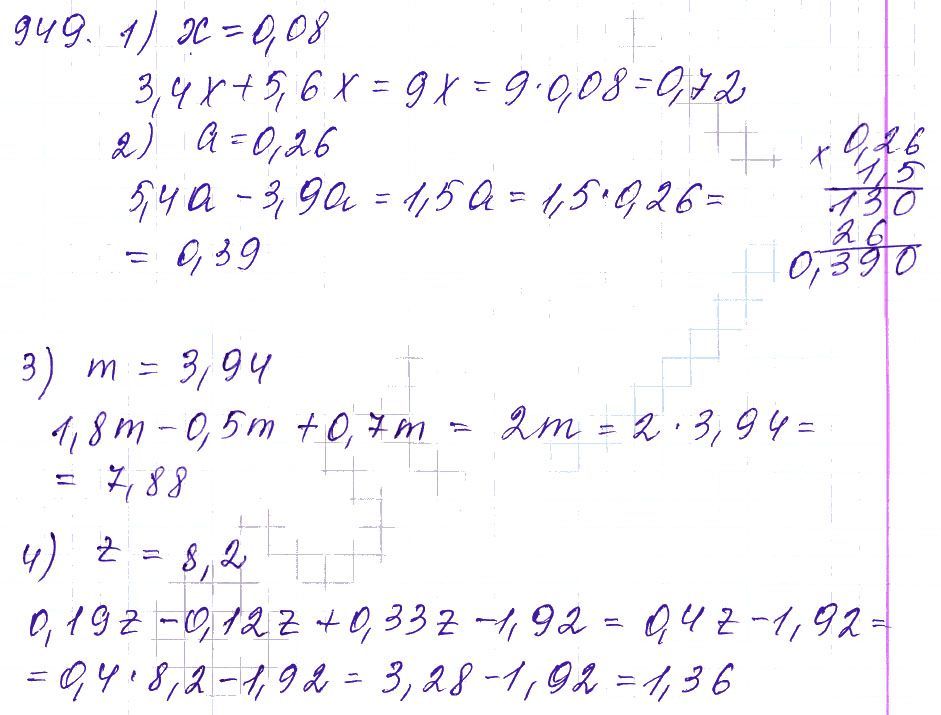 949. 1) x = 0,08
3,4x + 5,6x = 9x = 9·0,08 = 0,72
2) a = 0,26
5,4a - 3,9a = 1,5a = 1,5·0,26 =
= 0,39
× 0,26
1,5
130
26
0,390
3) m = 3,94
1,8m - 0,5m + 0,7m = 2m = 2·3,94 =
= 7,88
4) z = 8,2
0,19z - 0,12z + 0,33z - 1,92 = 0,4z - 1,92 =
= 0,4·8,2 - 1,92 = 3,28 - 1,92 = 1,36